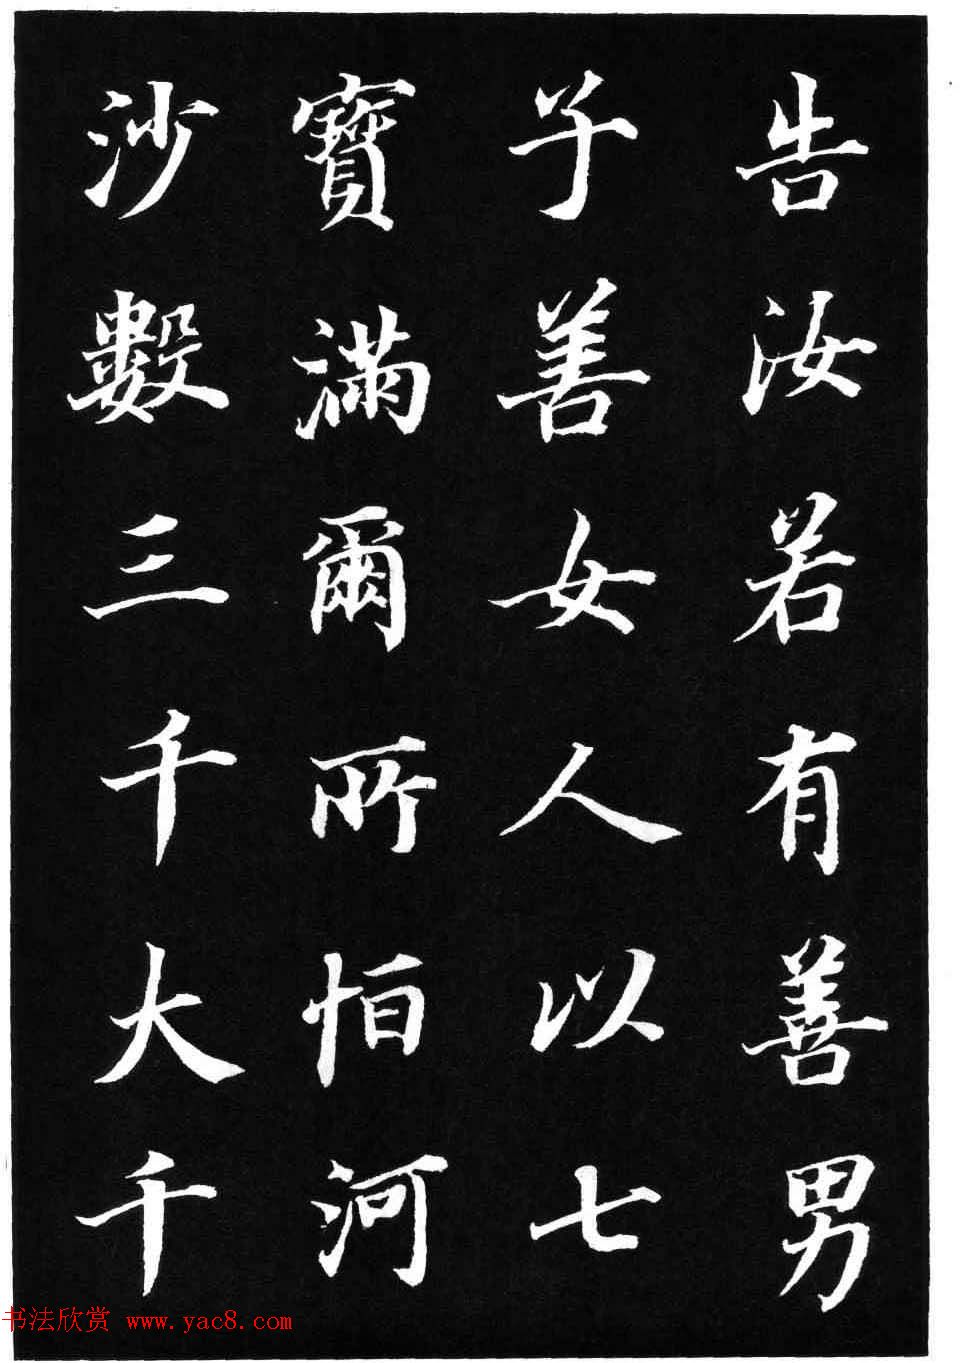 告汝若有善男
子善女人以七
寶滿爾所怕河
沙數三千大千
书法欣赏 www.yac8.com